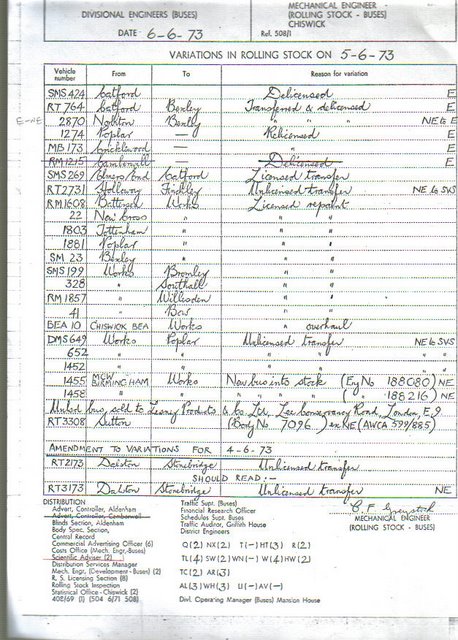 DIVISIONAL ENGINEERS (BUSES)
MECHANICAL ENGINEER
(ROLLING STOCK - BUSES)
CHISWICK
DATE 6-6-73
Ref. 508/1
VARIATIONS IN ROLLING STOCK ON 5-6-73
Vehicle number From To Reason for variation
SMS 424 Catford Delicensed E
RT 764 Catford Bexley Transferred & delicensed E
E-NE 2870 Norbiton Bexley " " " NE to E
1274 Poplar — Relicensed E
MB 173 Cricklewood — " E
RM 1215 Camberwell Delicensed E
SMS 269 Elmers End Catford Licensed transfer
RT 2731 Holloway Finchley Unlicensed transfer NE to SVS
RM 1608 Battersea Works Licensed repaint
22 New Cross " " "
1803 Tottenham " " "
1881 Poplar " " "
SM 23 Bexley " " "
SMS 199 Works Bromley " "
328 " Southall " "
RM 1857 " Willesden " "
41 " Bow " "
BEA 10 CHISWICK BEA Works " overhaul
DMS 649 Works Poplar Unlicensed transfer NE to SVS
652 " " " " "
1452 " " " " "
1455 MCW BIRMINGHAM Works New bus into stock (Eng No 188080) NE
1458 " " " " " ( " 188216) NE
Unlicd bus sold to Lesney Products & Co. Ltd., Lee Conservancy Road, London, E.9
RT 3308 Sutton (Body No 7096) ex NE (AWCA 399/885)
AMENDMENT TO VARIATIONS FOR 4-6-73
RT 2173 Dalston Stonebridge Unlicensed transfer
SHOULD READ:-
RT 3173 Dalston Stonebridge Unlicensed transfer NE
DISTRIBUTION
Advert, Controller, Aldenham
Advert, Controller, Camberwell
Blinds Section, Aldenham
Body Spec. Section,
Central Record
Commercial Advertising Officer (6)
Costs Office (Mech. Engr-Buses)
Scientific Adviser (2)
Distribution Services Manager
Mech. Engr. (Development-Buses) (2)
R. S. Licensing Section (8)
Rolling Stock Inspection
Statistical Office - Chiswick (2)
408/69 (1) (504 6/71 508)
Traffic Supt. (Buses)
Financial Research Officer
Schedules Supt. Buses
Traffic Auditor, Griffith House
District Engineers
Q(2) NX(2) T(-) HT(3) R(2)
TL(4) SW(2) WN(-) W(4) HW(2)
TC(2) AR(3)
AL(3) WH(3) U(-) AV(-)
Divl. Operating Manager (Buses) Mansion House
MECHANICAL ENGINEER
(ROLLING STOCK - BUSES)